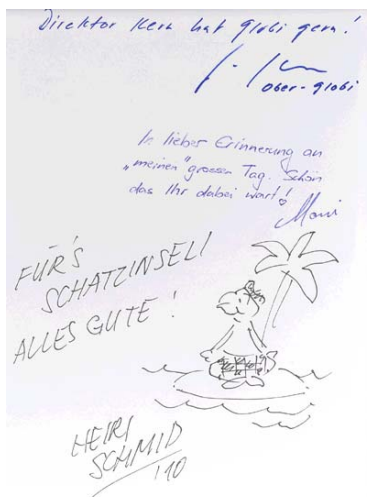 Direktor Kern hat Globi gern!
Ober-Globi
In lieber Erinnerung an
"meinen" grossen Tag. Schön
das Ihr dabei wart!
FÜR'S
SCHATZINSELI
ALLES GUTE!
HEIRI
SCHMID
'10